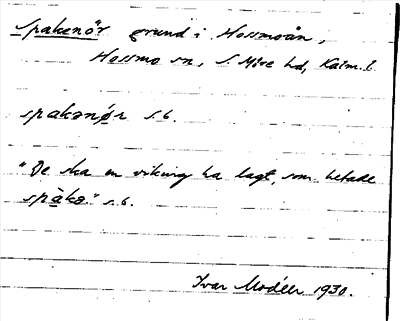 Spakenör grund i Hossmoån,
Hossmo sn, S. Möre hd, Kalm. l.
spakənør s.b.
"De ska en viking ha legt, som hetade
spàkə." s.b.
Ivar Modéer 1930.